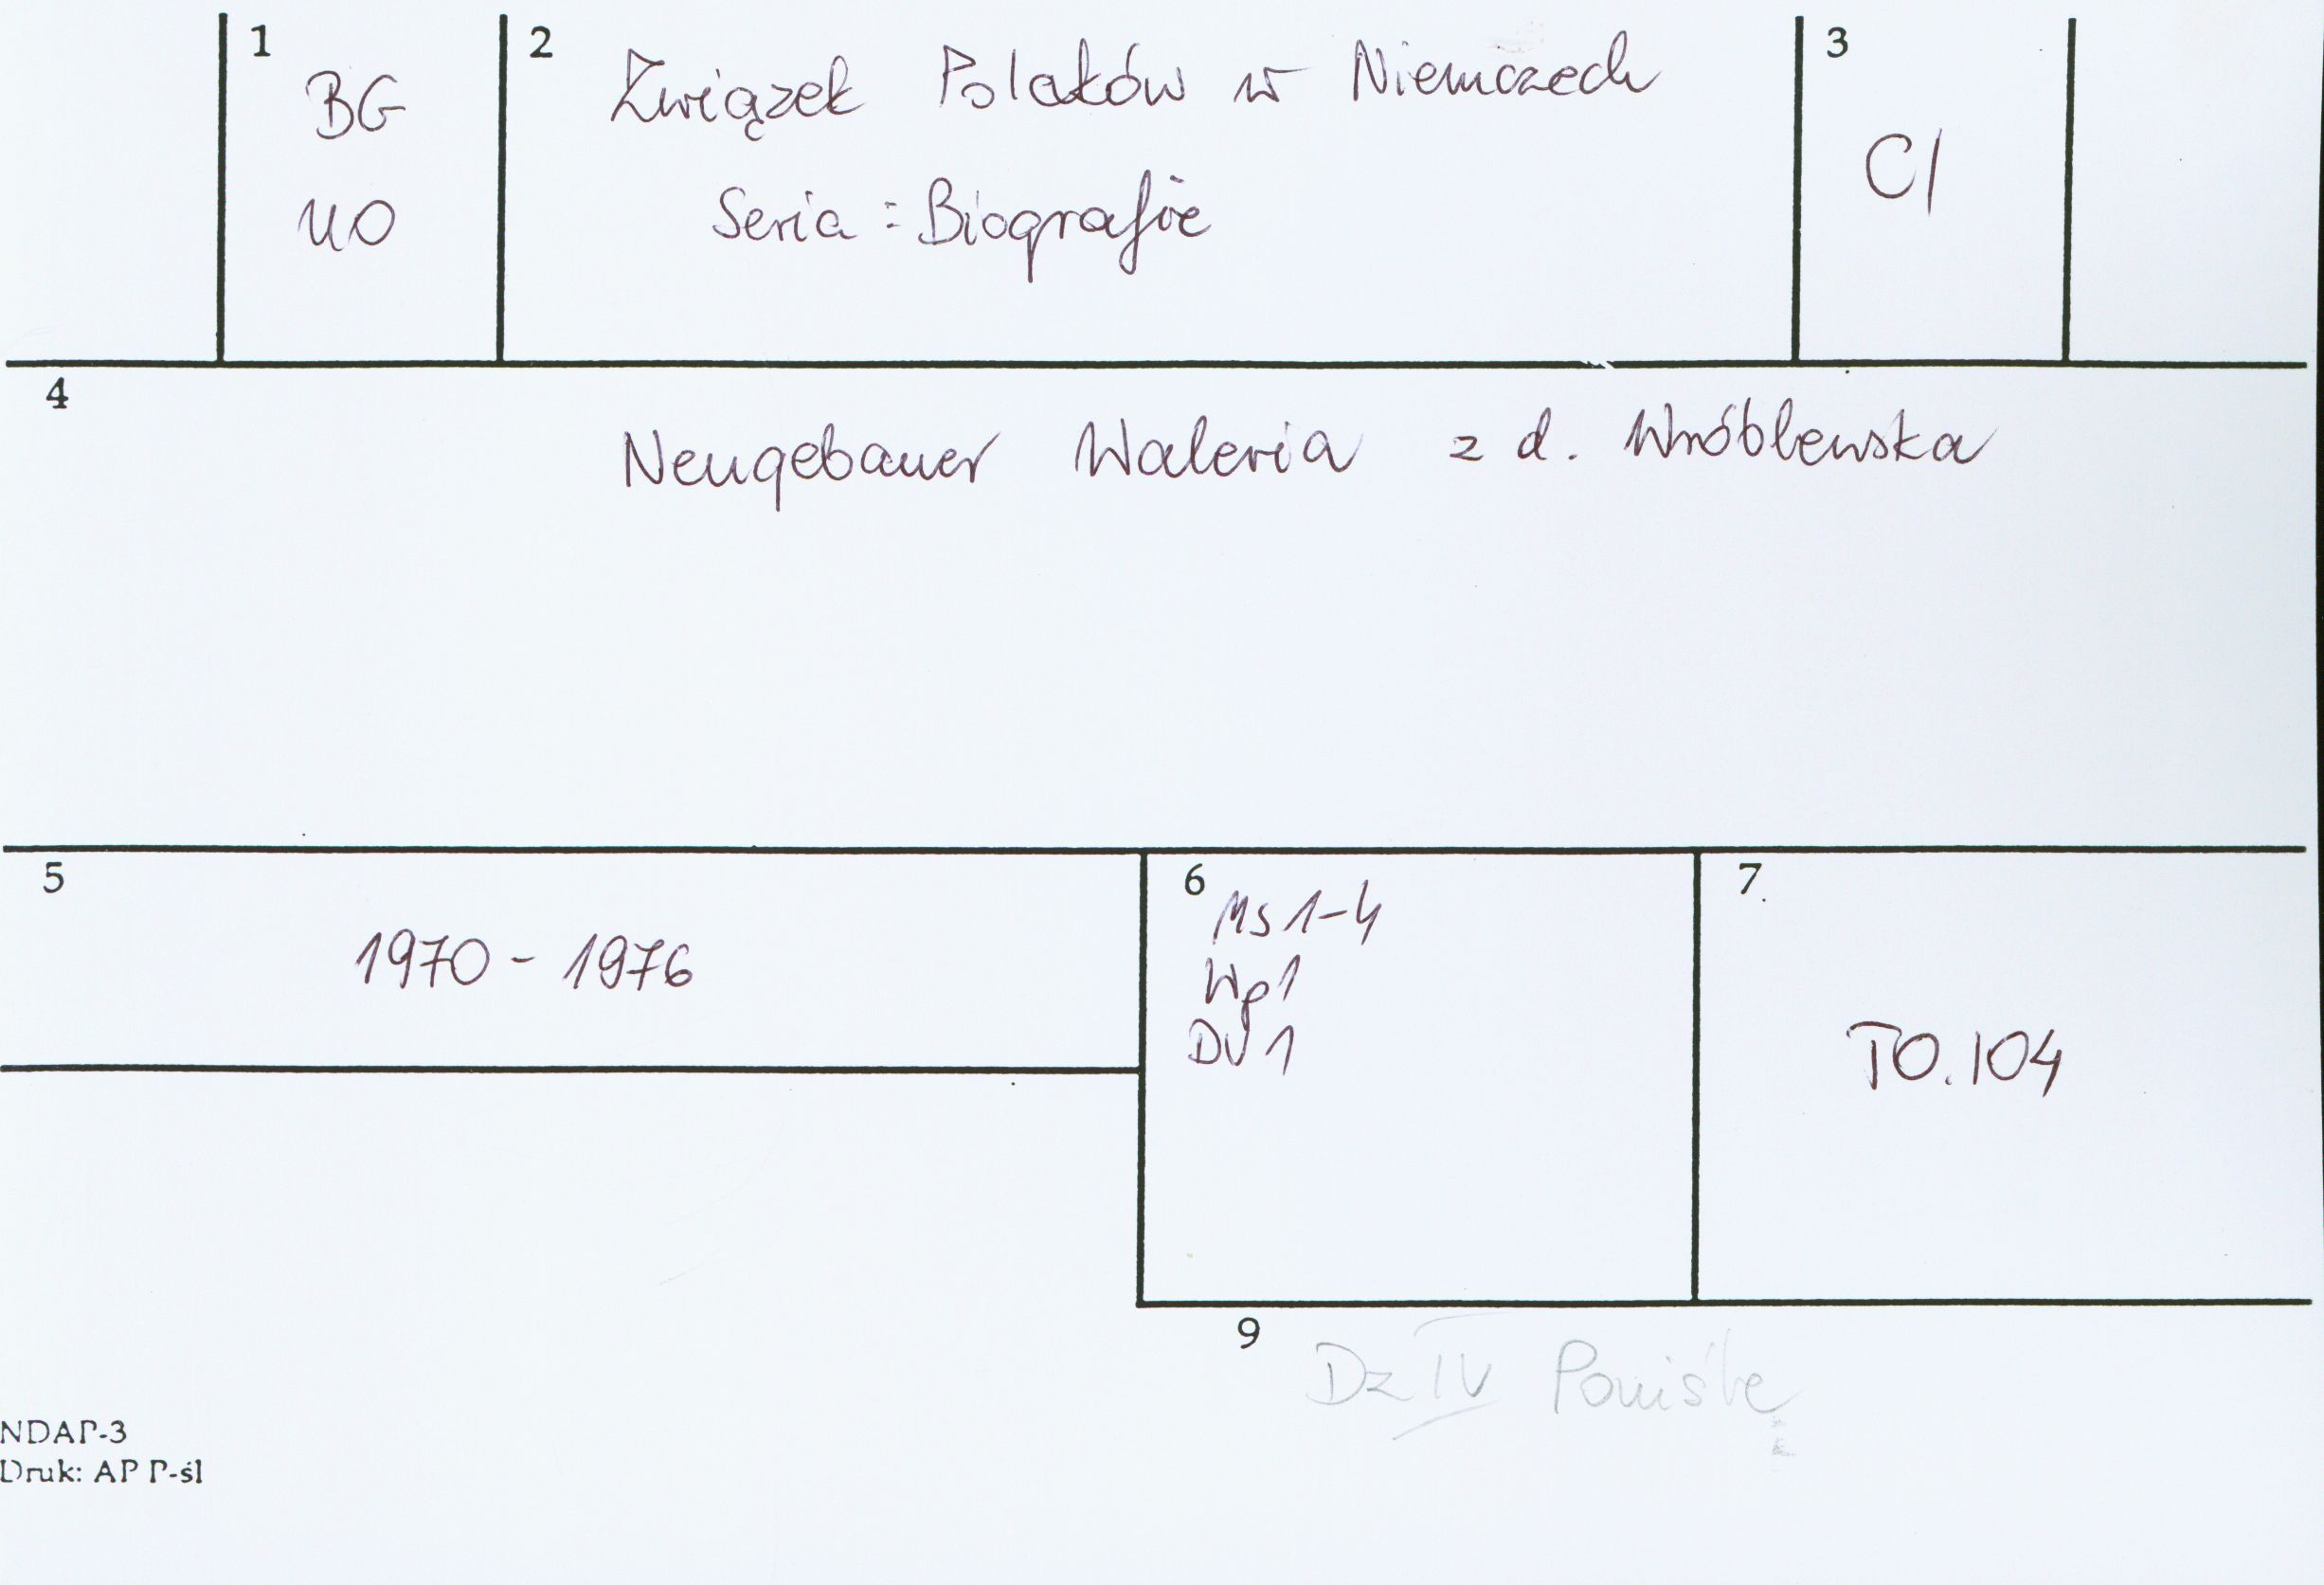 1
BG
UO
2
Związek Polaków w Niemczech
Seria : Biografie
3
C/
4
Neugebauer Waleria z d. Wróblewska
5
1970 - 1976
6
Ms 1-4
Wp1
DU 1
7.
TO.104
9
Dz IV Powiśle
NDAP-3
Druk: AP P-śl